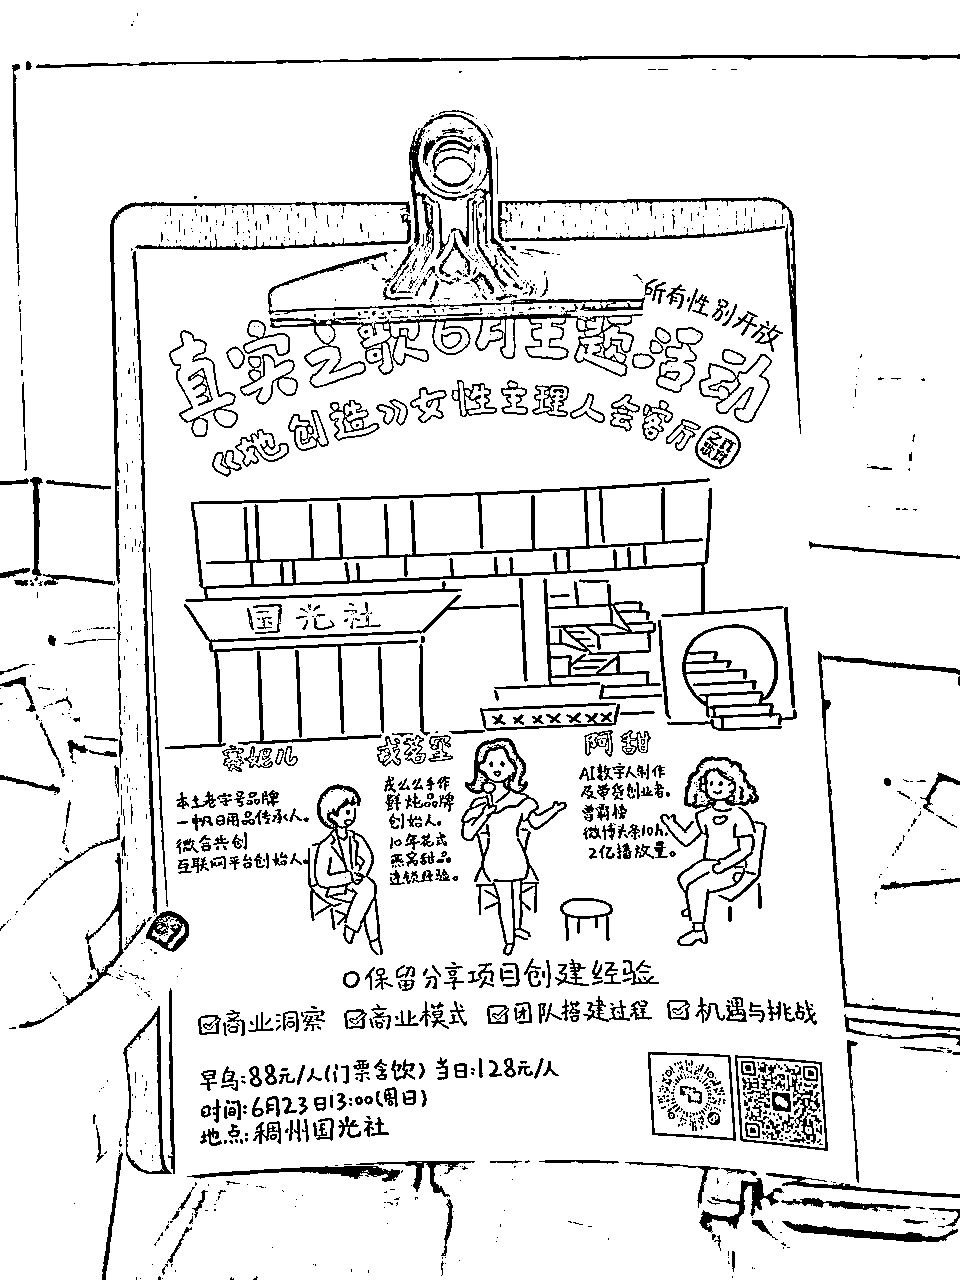 所有性别开放
真实之歌6月主题活动
《她创造》女性主理人会客厅
国光社
赛妮儿
本土老字号品牌
一帆日用品传承人。
微合共创
互联网平台创始人。
戎若垩
戎么么手作
鲜炖品牌
创始人。
10年花式
燕窝甜品
连锁经验。
阿甜
AI数字人制作
及带货创业者。
曾霸榜
微博头条10h,
2亿播放量。
O保留分享项目创建经验
☑商业洞察 ☑商业模式 ☑团队搭建过程 ☑机遇与挑战
早鸟:88元/人(门票含饮) 当日:128元/人
时间:6月23日13:00(周日)
地点:稠州国光社